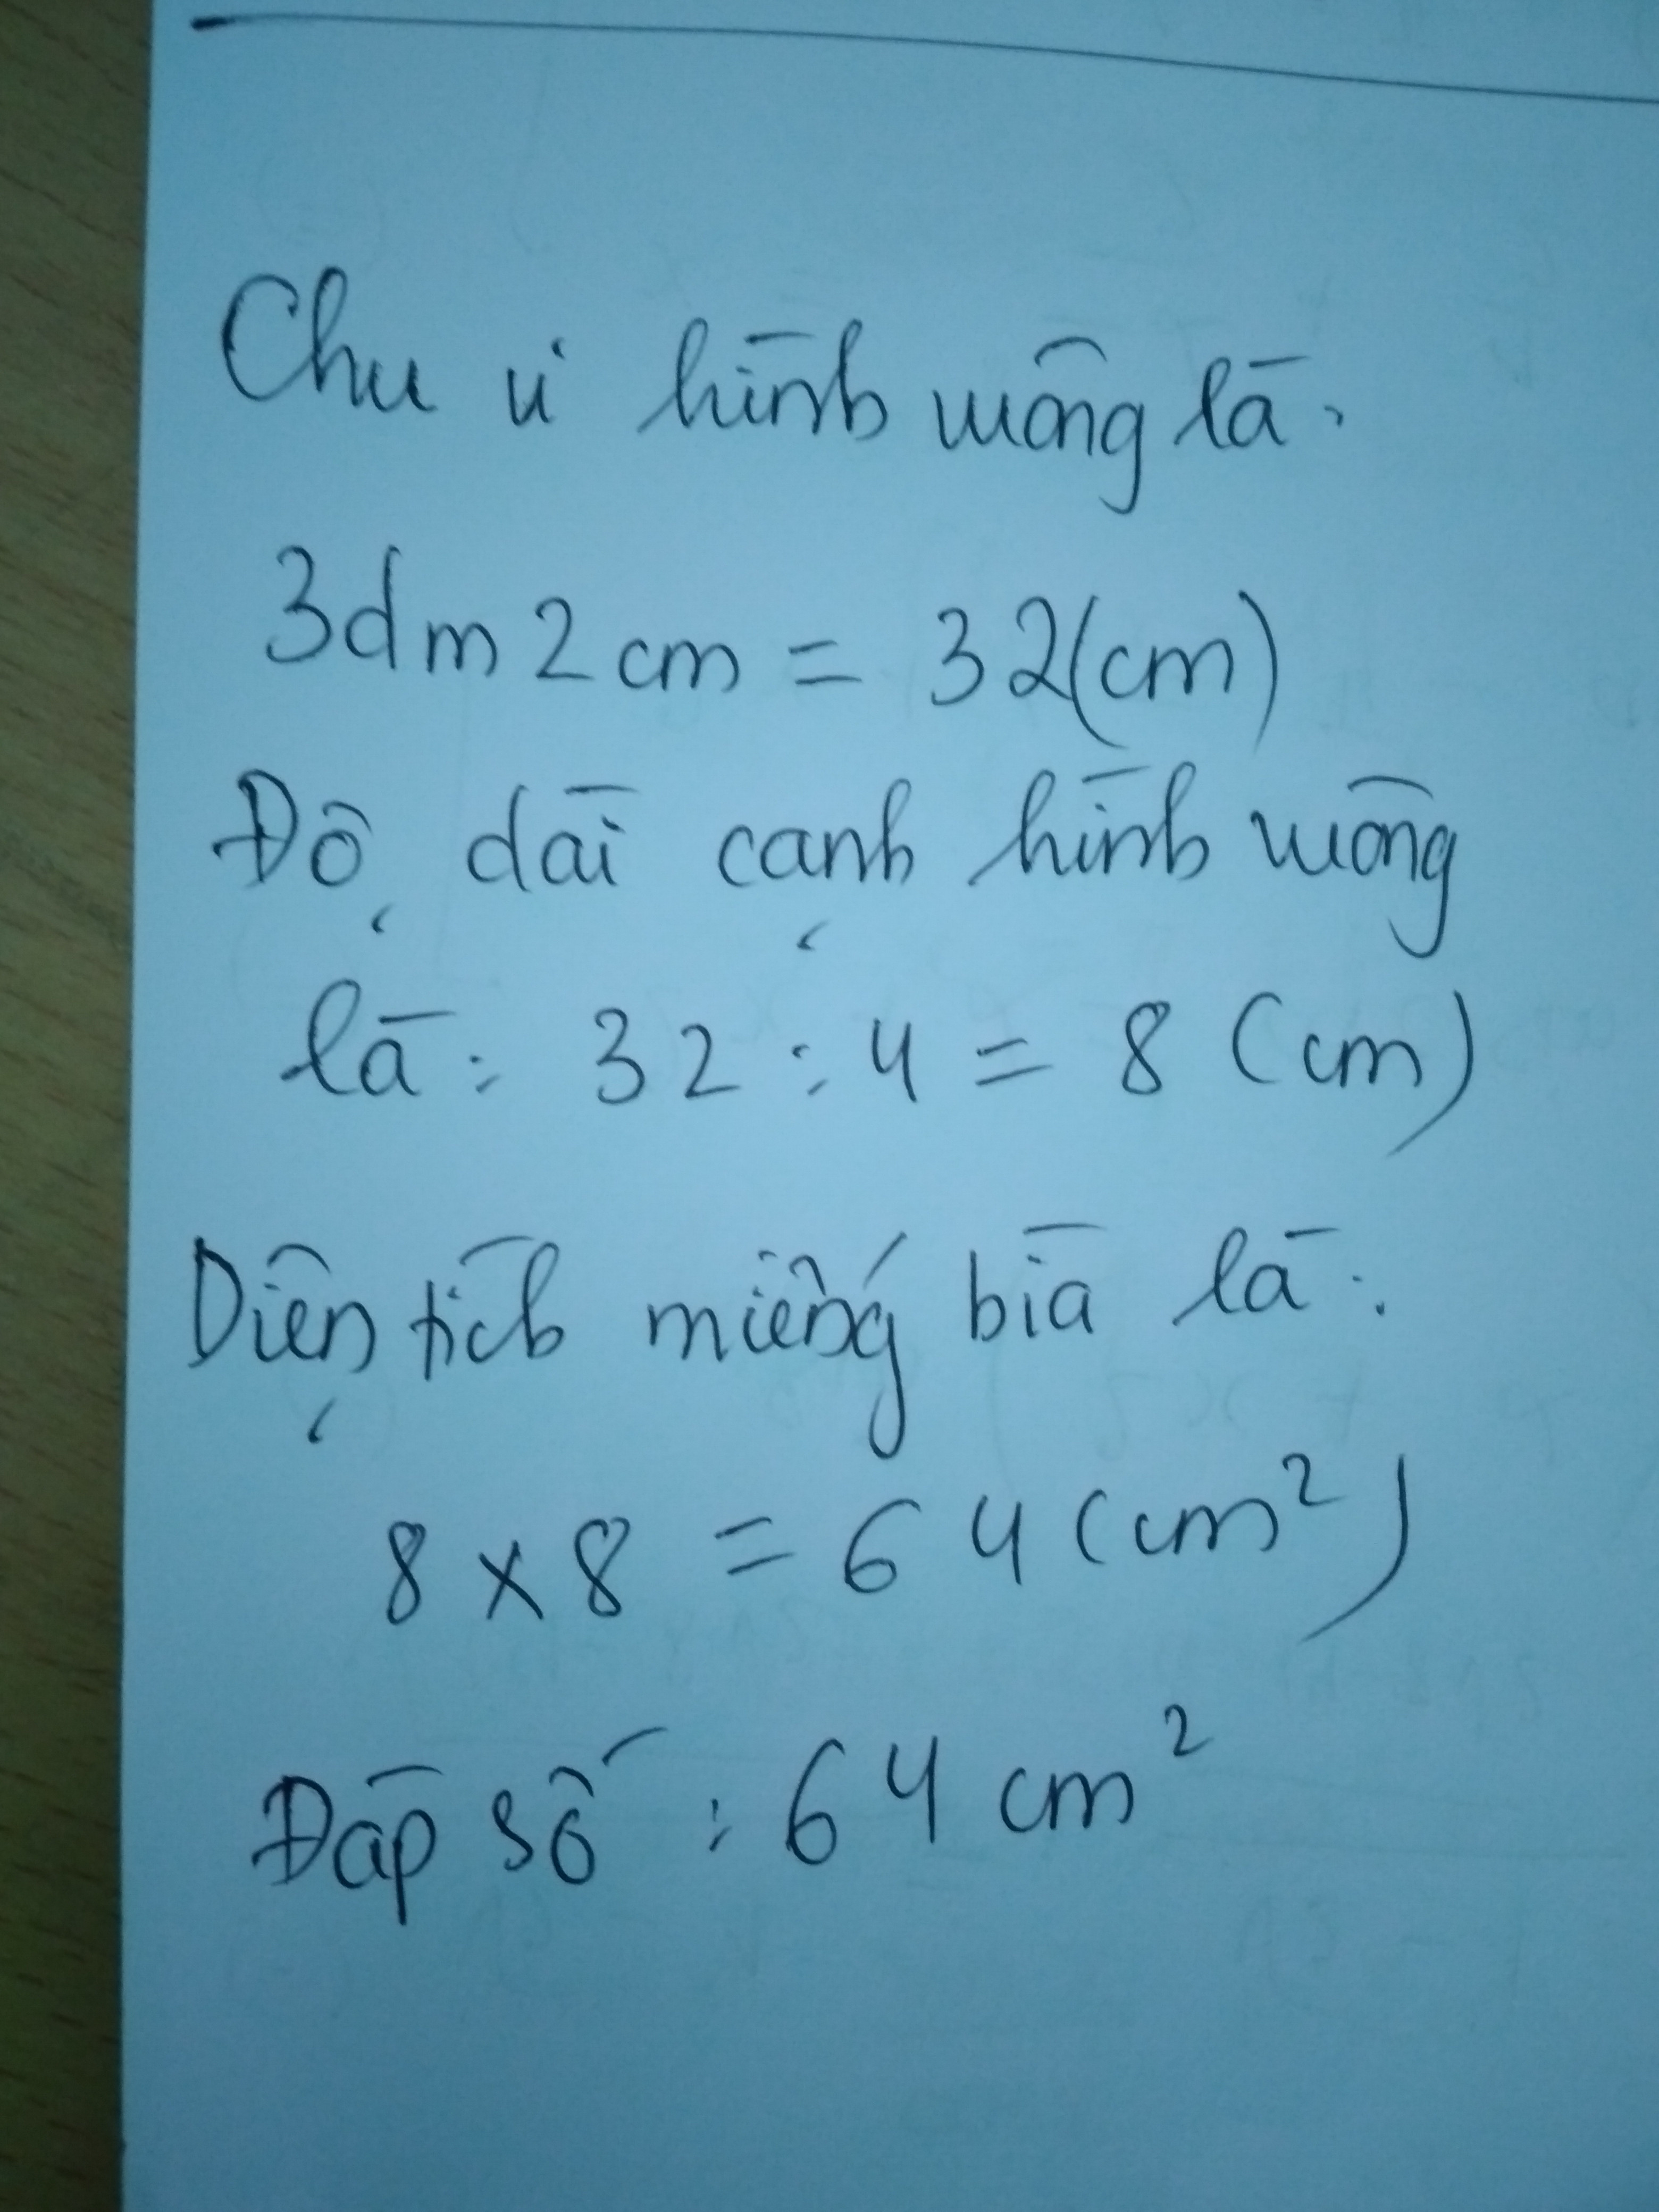 Chu vi hình vuông là.
3dm 2cm = 32(cm)
Độ dài cạnh hình vuông
là: 32 : 4 = 8 (cm)
Diện tích miếng bìa là:
8 x 8 = 64 (cm²)
Đáp số : 64 cm²